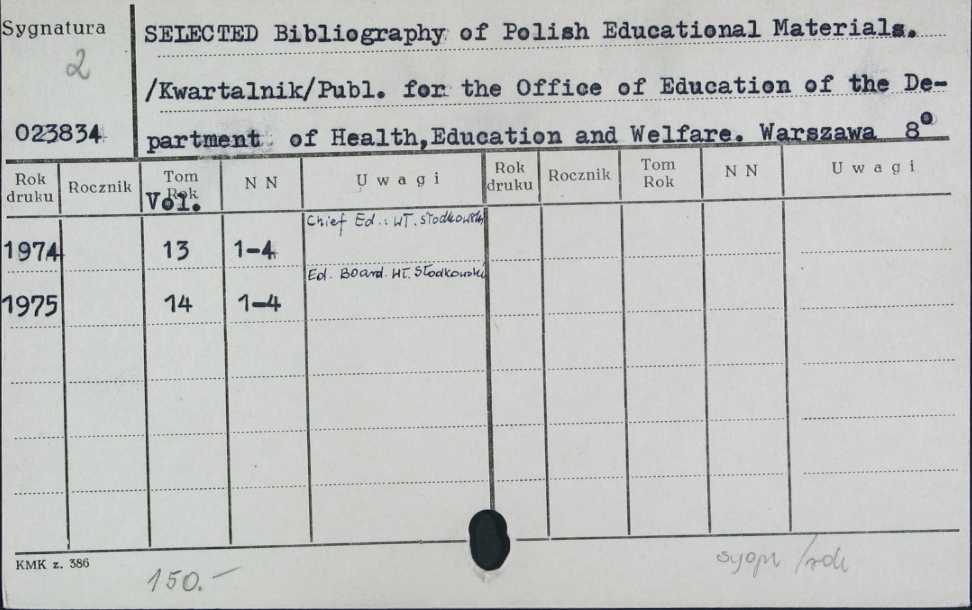 Sygnatura
2
023834
SELECTED Bibliography of Polish Educational Materials.
/Kwartalnik/Publ. for the Office of Education of the De-
partment of Health,Education and Welfare. Warszawa 8°
Rok druku Rocznik Tom Rok N N Uwagi Rok druku Rocznik Tom Rok N N Uwagi
Vol.
Chief Ed.: Wł. Słodkowski
1974 13 1-4
Ed. Board. Wł. Słodkowski
1975 14 1-4
KMK z. 386
150.-